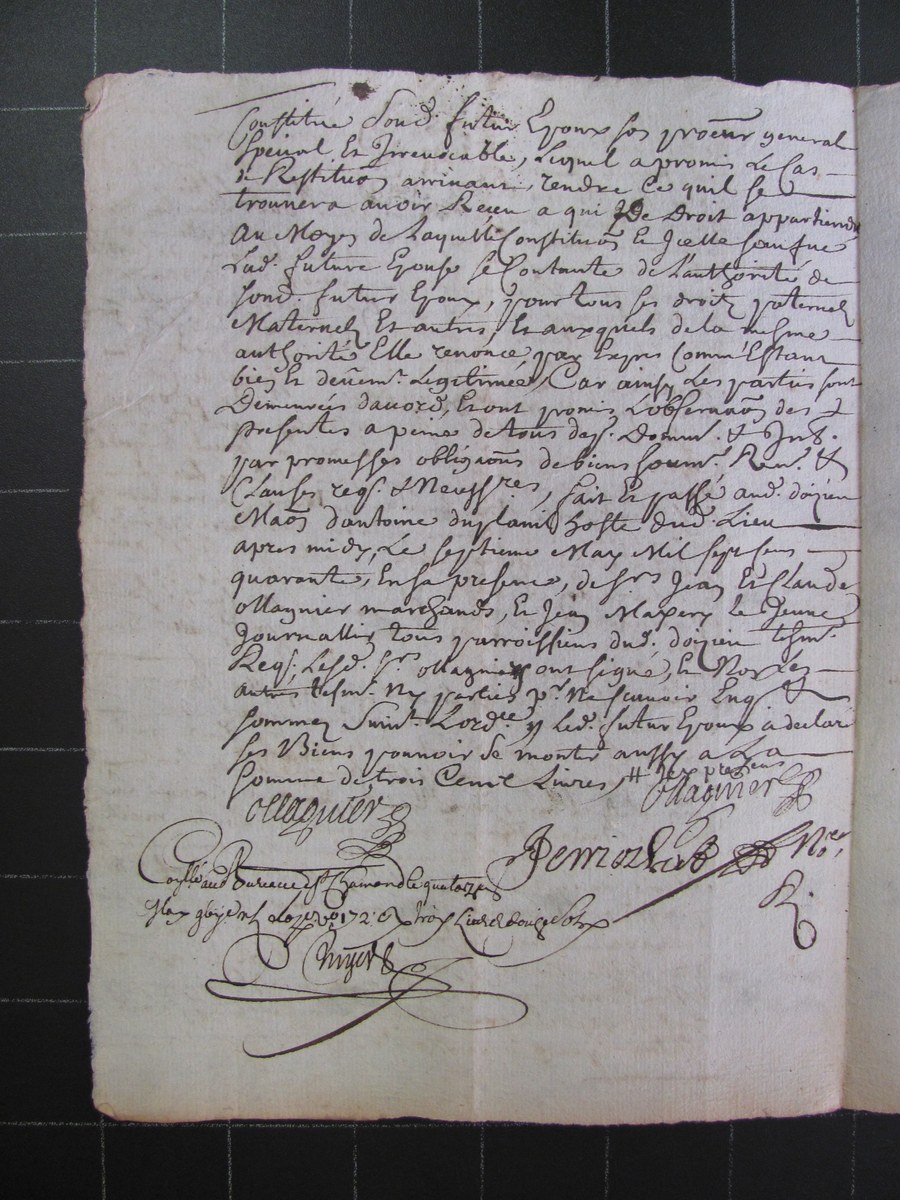 Constitué Sond. futur Epoux son procur general
special Et Irrevocable, Lequel a promis Le Cas
de Restituon arrivant, rendre Ce quil se
trouvera avoir Receu a qui De Droit appartiendra
Au Moyen de Laquelle Constituon Et Icelle saufve
Lad. future Epouse se Contante de L'authorité de
sond. futur Epoux, pour tous ses droitz paternelz
Maternelz Et autres, Et auxquels de la mesme
authorité Elle renonce par Expres Comm'Estant
bien Et deuem.t Legitimée, Car ainsy Les parties sont
Demeurées dacord, Et ont promis L'observaon des
presentes a peine de tous desp. Domm. & Int.
par promesses obligaons de biens soum. Ren. &
Clauses reqs. & Necessres, fait Et passé aud. doizieu
Maon d'antoine duplain hoste dud. Lieu
apres midy, Le septieme May Mil sept cens
quarante, En la presence, de Srs Jean Et Claude
Ollagnier marchands, Et Jean Mazery Le Jeune
Journallier tous parroissiens dud. doizieu tesm.
Reqs. Lesd. Srs Ollagnier ont signé, Et Non Les
autres tesm. Ny parties pr. Ne scavoir Enq. &
sommez Suivt. L'ordce y Led. futur Epoux a declaré
ses Biens pouvoir se monter aussy a La
somme de trois Cent Livres, # Les presens
Ollagnier Ollagnier
Nore
R.
Conllé au Bureau de St Chamond le quatorze
May